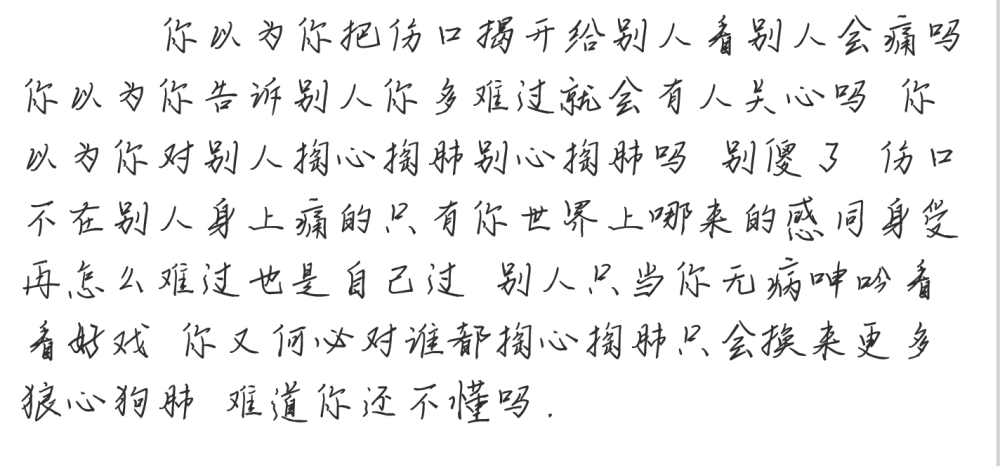 你以为你把伤口揭开给别人看别人会痛吗
你以为你告诉别人你多难过就会有人关心吗 你
以为你对别人掏心掏肺别心掏肺吗 别傻了 伤口
不在别人身上痛的只有你世界上哪来的感同身受
再怎么难过也是自己过 别人只当你无病呻吟看
看好戏 你又何必对谁都掏心掏肺只会换来更多
狼心狗肺 难道你还不懂吗.